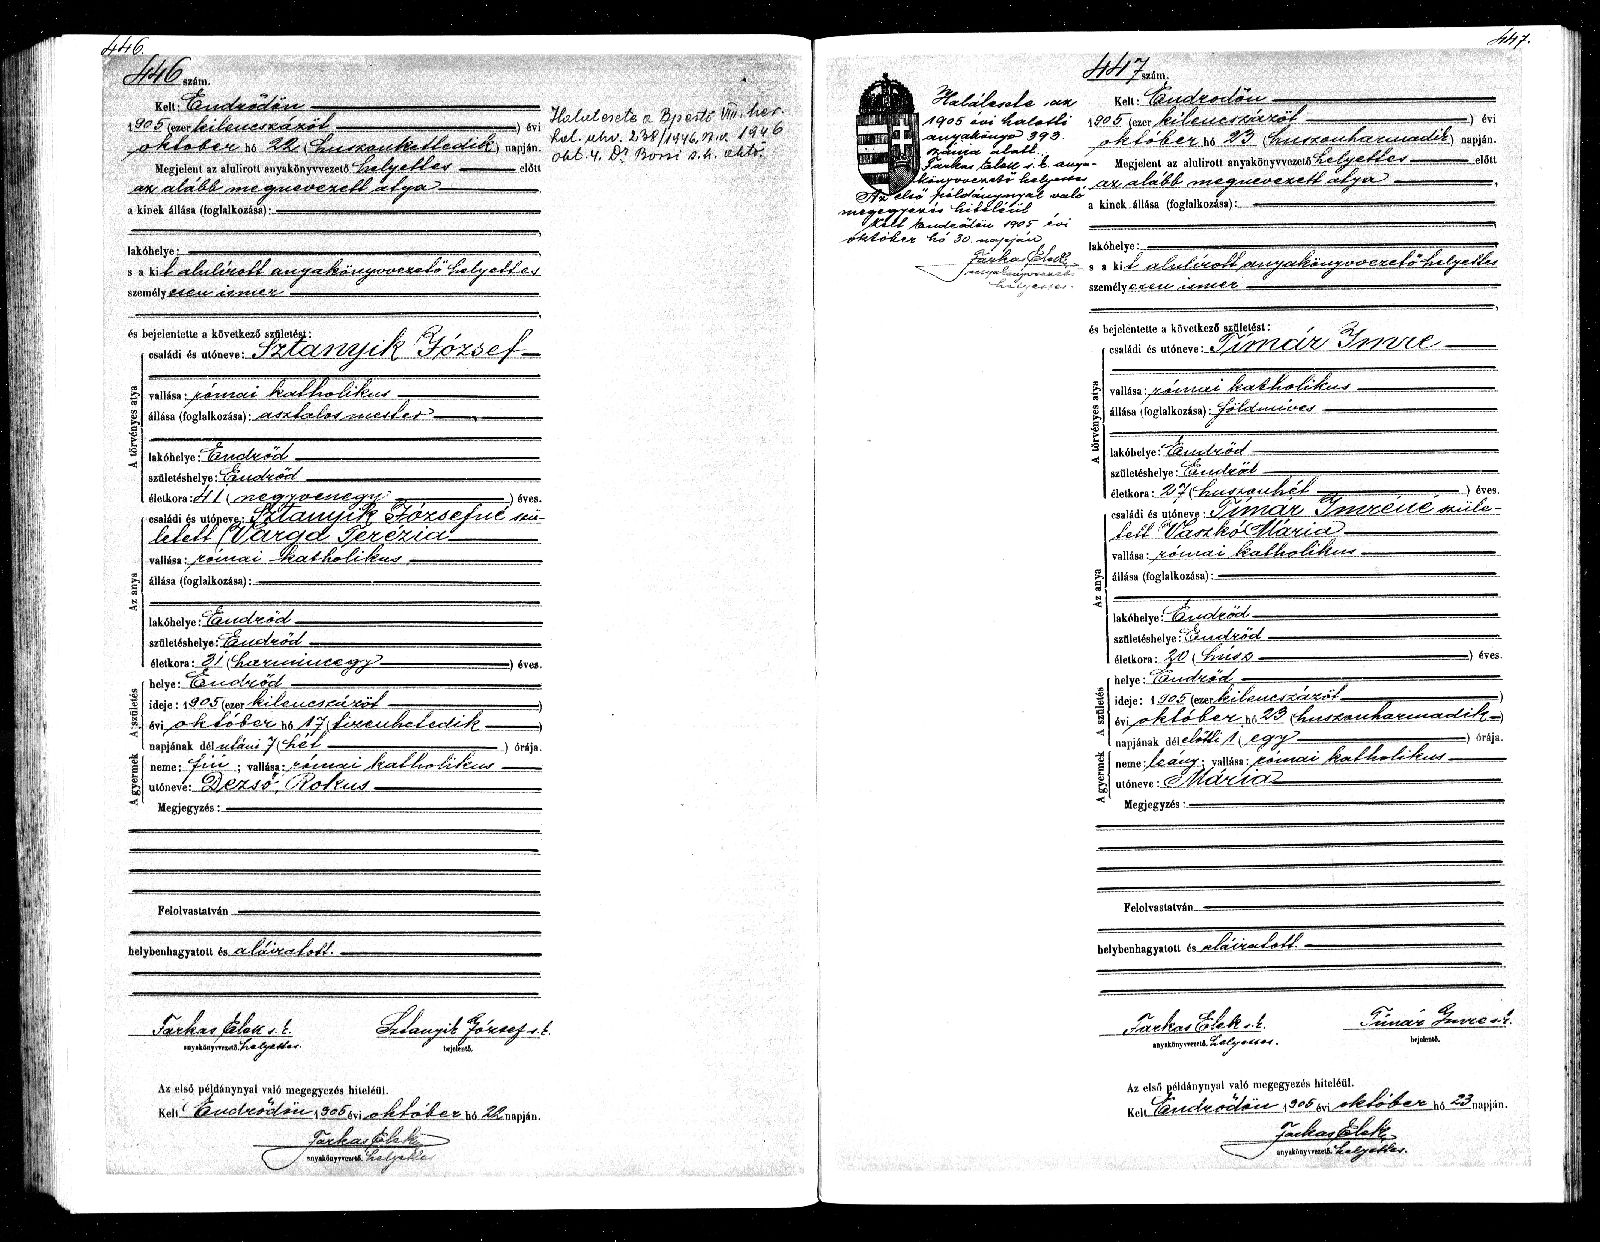 446.
446 szám.
Kelt: Endrődön
1905 (ezer kilencszázöt) évi
október hó 22 (huszonkettedik) napján.
Megjelent az alulirott anyakönyvvezető helyettes előtt
az alább megnevezett atya
a kinek állása (foglalkozása):
lakóhelye:
s a kit alulírott anyakönyvvezető helyettes
személyesen ismer
és bejelentette a következő születést:
A törvényes atya
családi és utóneve: Sztanyik József
vallása: római katholikus
állása (foglalkozása): asztalos mester
lakóhelye: Endrőd
születéshelye: Endrőd
életkora: 41 (negyvenegy) éves.
Az anya
családi és utóneve: Sztanyik Józsefné szü-
letett Varga Terézia
vallása: római katholikus
állása (foglalkozása):
lakóhelye: Endrőd
születéshelye: Endrőd
életkora: 31 (harmincegy) éves.
A születés
helye: Endrőd
ideje: 1905 (ezer kilencszázöt)
évi október hó 17 (tizenhetedik
napjának dél utáni 7 (hét) órája.
A gyermek
neme: fiú; vallása: római katholikus
utóneve: Dezső, Rokus
Megjegyzés:
Felolvastatván
helybenhagyatott és aláíratott.
Farkas Elek s. k.
anyakönyvvezető helyettes.
Sztanyik József s. k.
bejelentő.
Az első példánynyal való megegyezés hiteléül.
Kelt Endrődön 1905 évi október hó 22 napján.
Farkas Elek
anyakönyvvezető. helyettes
Halálesete a Bpesti VIII. ker.
hal. akv. 238/1946. 1946
okt. 4. Dr
447.
Halálesete az
1905 évi halotti
anyakönyv 393.
száma alatt.
Farkas Elek s. k. anya-
könyvvezető helyettes
Az első példánynyal való
megegyezés hiteléül
Kelt Endrődön 1905 évi
október hó 30. napján
Farkas Elek
anyakönyvvezető
helyettes.
447 szám.
Kelt: Endrődön
1905 (ezer kilencszázöt) évi
október hó 23 (huszonharmadik) napján.
Megjelent az alulirott anyakönyvvezető helyettes előtt
az alább megnevezett atya
a kinek állása (foglalkozása):
lakóhelye:
s a kit alulírott anyakönyvvezető helyettes
személyesen ismer
és bejelentette a következő születést:
A törvényes atya
családi és utóneve: Tímár Imre
vallása: római katholikus
állása (foglalkozása): földmíves
lakóhelye: Endrőd
születéshelye: Endrőd
életkora: 27 (huszonhét) éves.
Az anya
családi és utóneve: Tímár Imréné szüle-
tett Vaszkó Mária
vallása: római katholikus
állása (foglalkozása):
lakóhelye: Endrőd
születéshelye: Endrőd
életkora: 20 (húsz) éves.
A születés
helye: Endrőd
ideje: 1905 (ezer kilencszázöt)
évi október hó 23 (huszonharmadik)
napjának dél előtti 1 (egy) órája.
A gyermek
neme: leány; vallása: római katholikus
utóneve: Mária
Megjegyzés:
Felolvastatván
helybenhagyatott és aláíratott.
Farkas Elek s. k.
anyakönyvvezető. helyettes.
Tímár Imre s. k.
bejelentő.
Az első példánynyal való megegyezés hiteléül.
Kelt Endrődön 1905 évi október hó 23 napján.
Farkas Elek
anyakönyvvezető. helyettes.